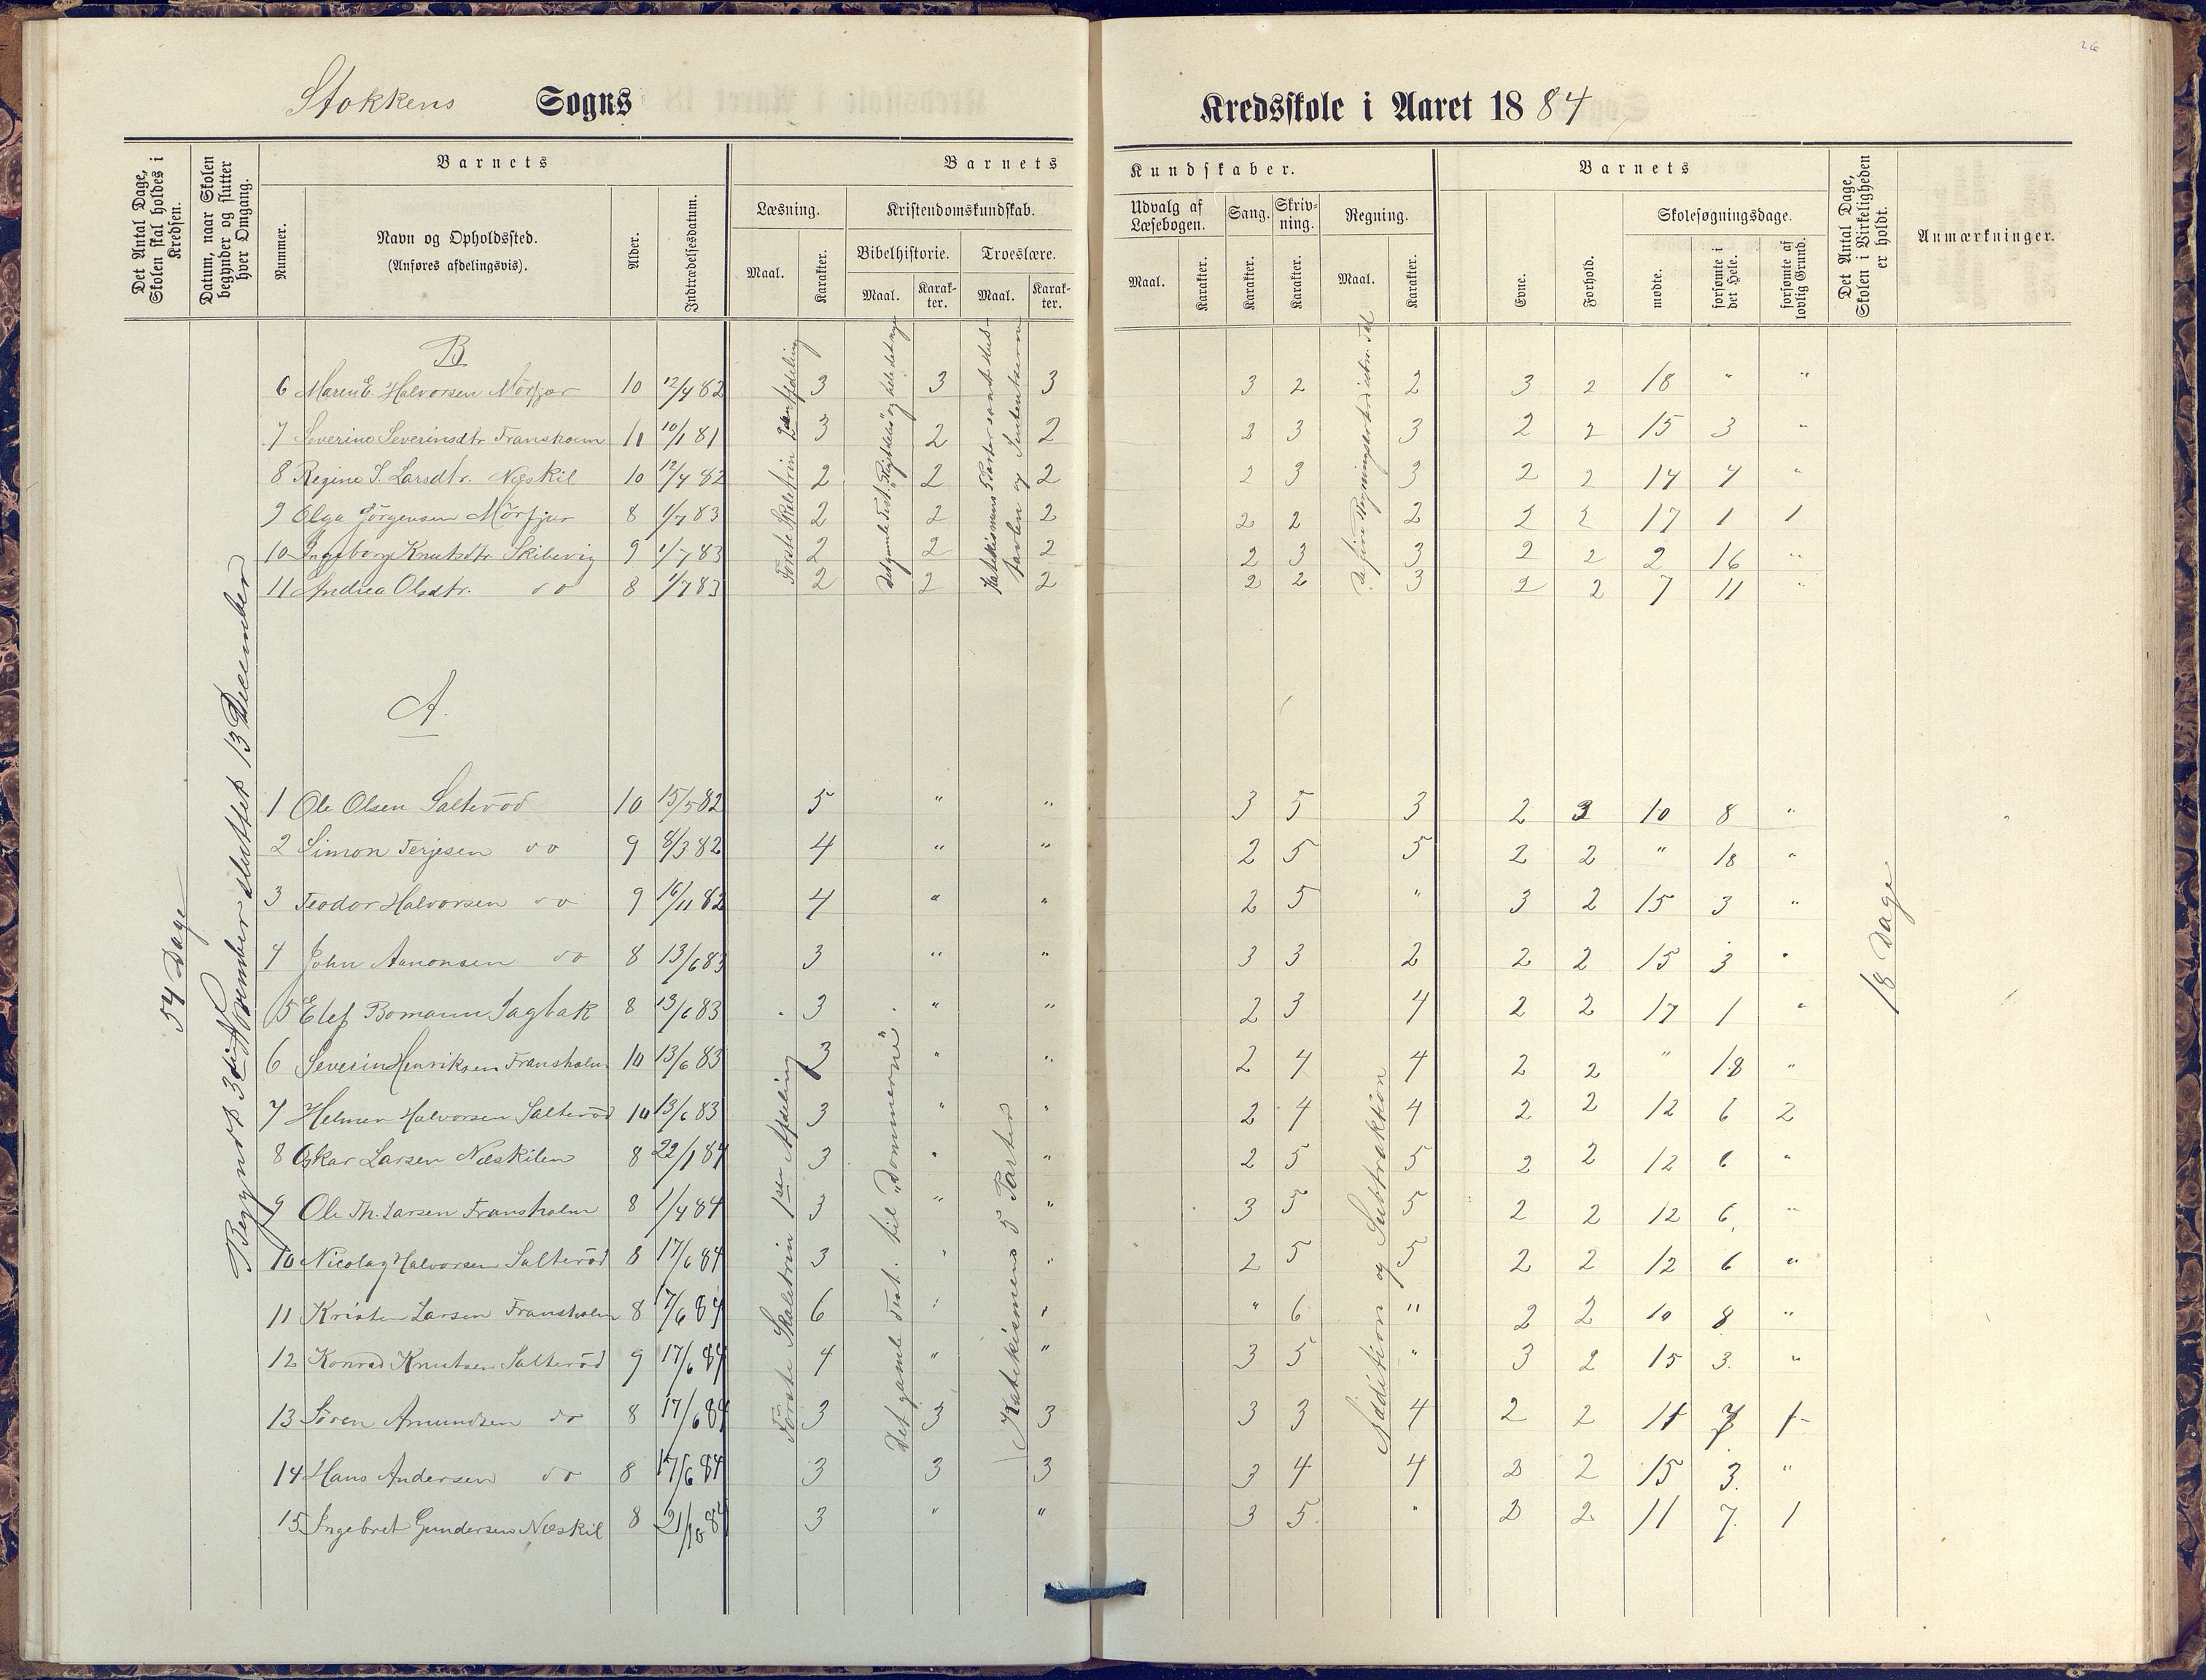 26
Stokkens Sogns Kredsskole i Aaret 1884
Det Antal Dage, Skolen skal holdes i Kredsen.
Datum, naar Skolen begynder og slutter hver Omgang.
Barnets
Nummer.
Navn og Opholdssted.
(Anføres afdelingsvis).
Alder.
Indtrædelsesdatum.
Barnets Kundskaber.
Læsning.
Maal. Karakter.
Kristendomskundskab.
Bibelhistorie. Troeslære.
Maal. Karakter. Maal. Karakter.
Udvalg af Læsebogen.
Maal. Karakter.
Sang. Skrivning. Regning.
Karakter. Karakter. Maal. Karakter.
Barnets
Evne. Forhold.
Skolesøgningsdage.
mødte. forsømte i det Hele. forsømte af lovlig Grund.
Det Antal Dage, Skolen i Virkeligheden er holdt.
Anmærkninger.
54 Dage
Begyndt 3die November sluttet 13 December
B
Første Skoletrin 2den Afdeling
Katekismens Parter samt Hustavlen og
6 Maren E. Halvorsen Mörfjær 10 12/4 82 3 3 3 3 2 2 3 2 18 " "
7 Severine Severinsdtr Fransholm 11 10/1 81 3 2 2 2 3 3 2 2 15 3 "
8 Regine S. Larsdtr. Næskil 10 12/4 82 2 2 2 2 3 3 2 2 14 4 "
9 Olga Jörgensen Mörfjær 8 1/7 83 2 2 2 2 2 2 2 2 17 1 1
10 Ingeborg Knutsdtr. Skibevig 9 1/7 83 2 2 2 2 3 3 2 2 2 16 "
11 Andrea Olsdtr. do 8 1/7 83 2 2 2 2 2 3 2 2 7 11 "
A.
Første Skoletrin 1ste Afdeling
Det gamle Test. til "Dommerne".
Katekismens 5 Parter
Addition og Subtraktion
18 Dage
1 Ole Olsen Salteröd 10 15/5 82 5 " " 3 5 3 2 3 10 8 "
2 Simon Terjesen do 9 8/3 82 4 " " 2 5 5 2 2 " 18 "
3 Teodor Halvorsen do 9 16/11 82 4 " " 2 5 " 3 2 15 3 "
4 John Aanonsen do 8 13/6 83 3 " " 3 3 2 2 2 15 3 "
5 Elef Bomann Sagbak 8 13/6 83 3 " " 2 3 4 2 2 17 1 "
6 Severin Henriksen Fransholm 10 13/6 83 3 " " 2 4 4 2 2 " 18 "
7 Helmer Halvorsen Salteröd 10 13/6 83 3 " " 2 4 4 2 2 12 6 2
8 Oskar Larsen Næskilen 8 22/1 84 3 " " 2 5 5 2 2 12 6 "
9 Ole Th. Larsen Fransholm 8 1/4 84 3 " " 3 5 5 2 2 12 6 "
10 Nicolay Halvorsen Salteröd 8 17/6 84 3 " " 2 5 5 2 2 12 6 "
11 Kristen Larsen Fransholm 8 17/6 84 6 " " " 6 " 2 2 10 8 "
12 Konrad Knutsen Salteröd 9 17/6 84 4 " " 3 5 " 3 2 15 3 "
13 Sören Amundsen do 8 17/6 84 3 3 3 3 3 4 2 2 11 7 1
14 Hans Andersen do 8 17/6 84 3 3 3 3 4 4 3 2 15 3 "
15 Ingebret Gundersen Næskil 8 21/10 84 3 " " 3 5 " 3 2 11 7 1